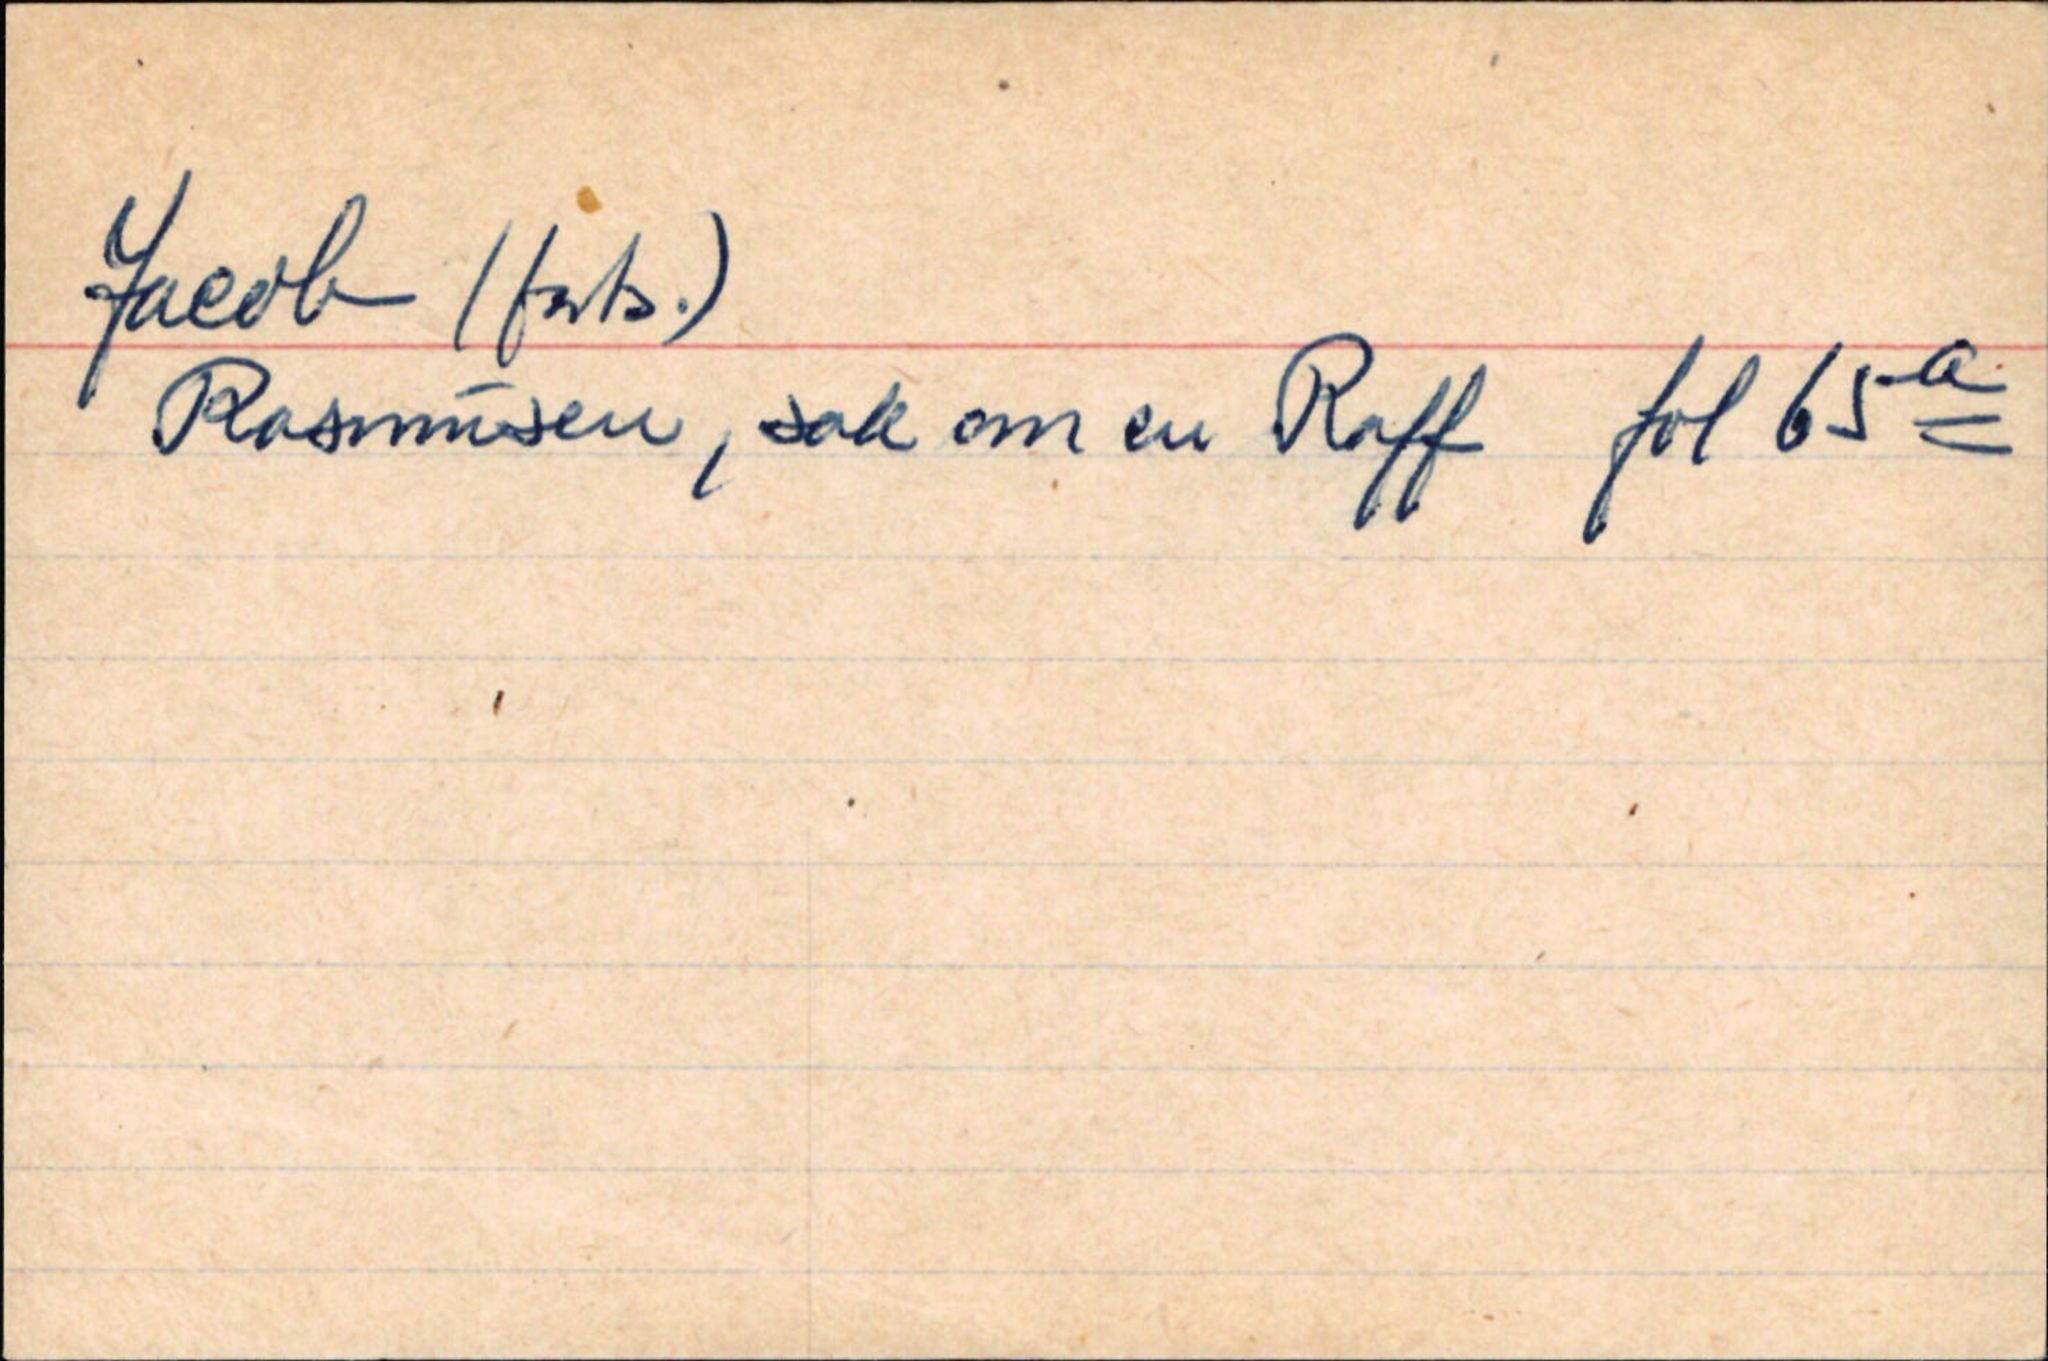 Jacob (forts.)
Rasmusen, sak om en Raff fol 65a